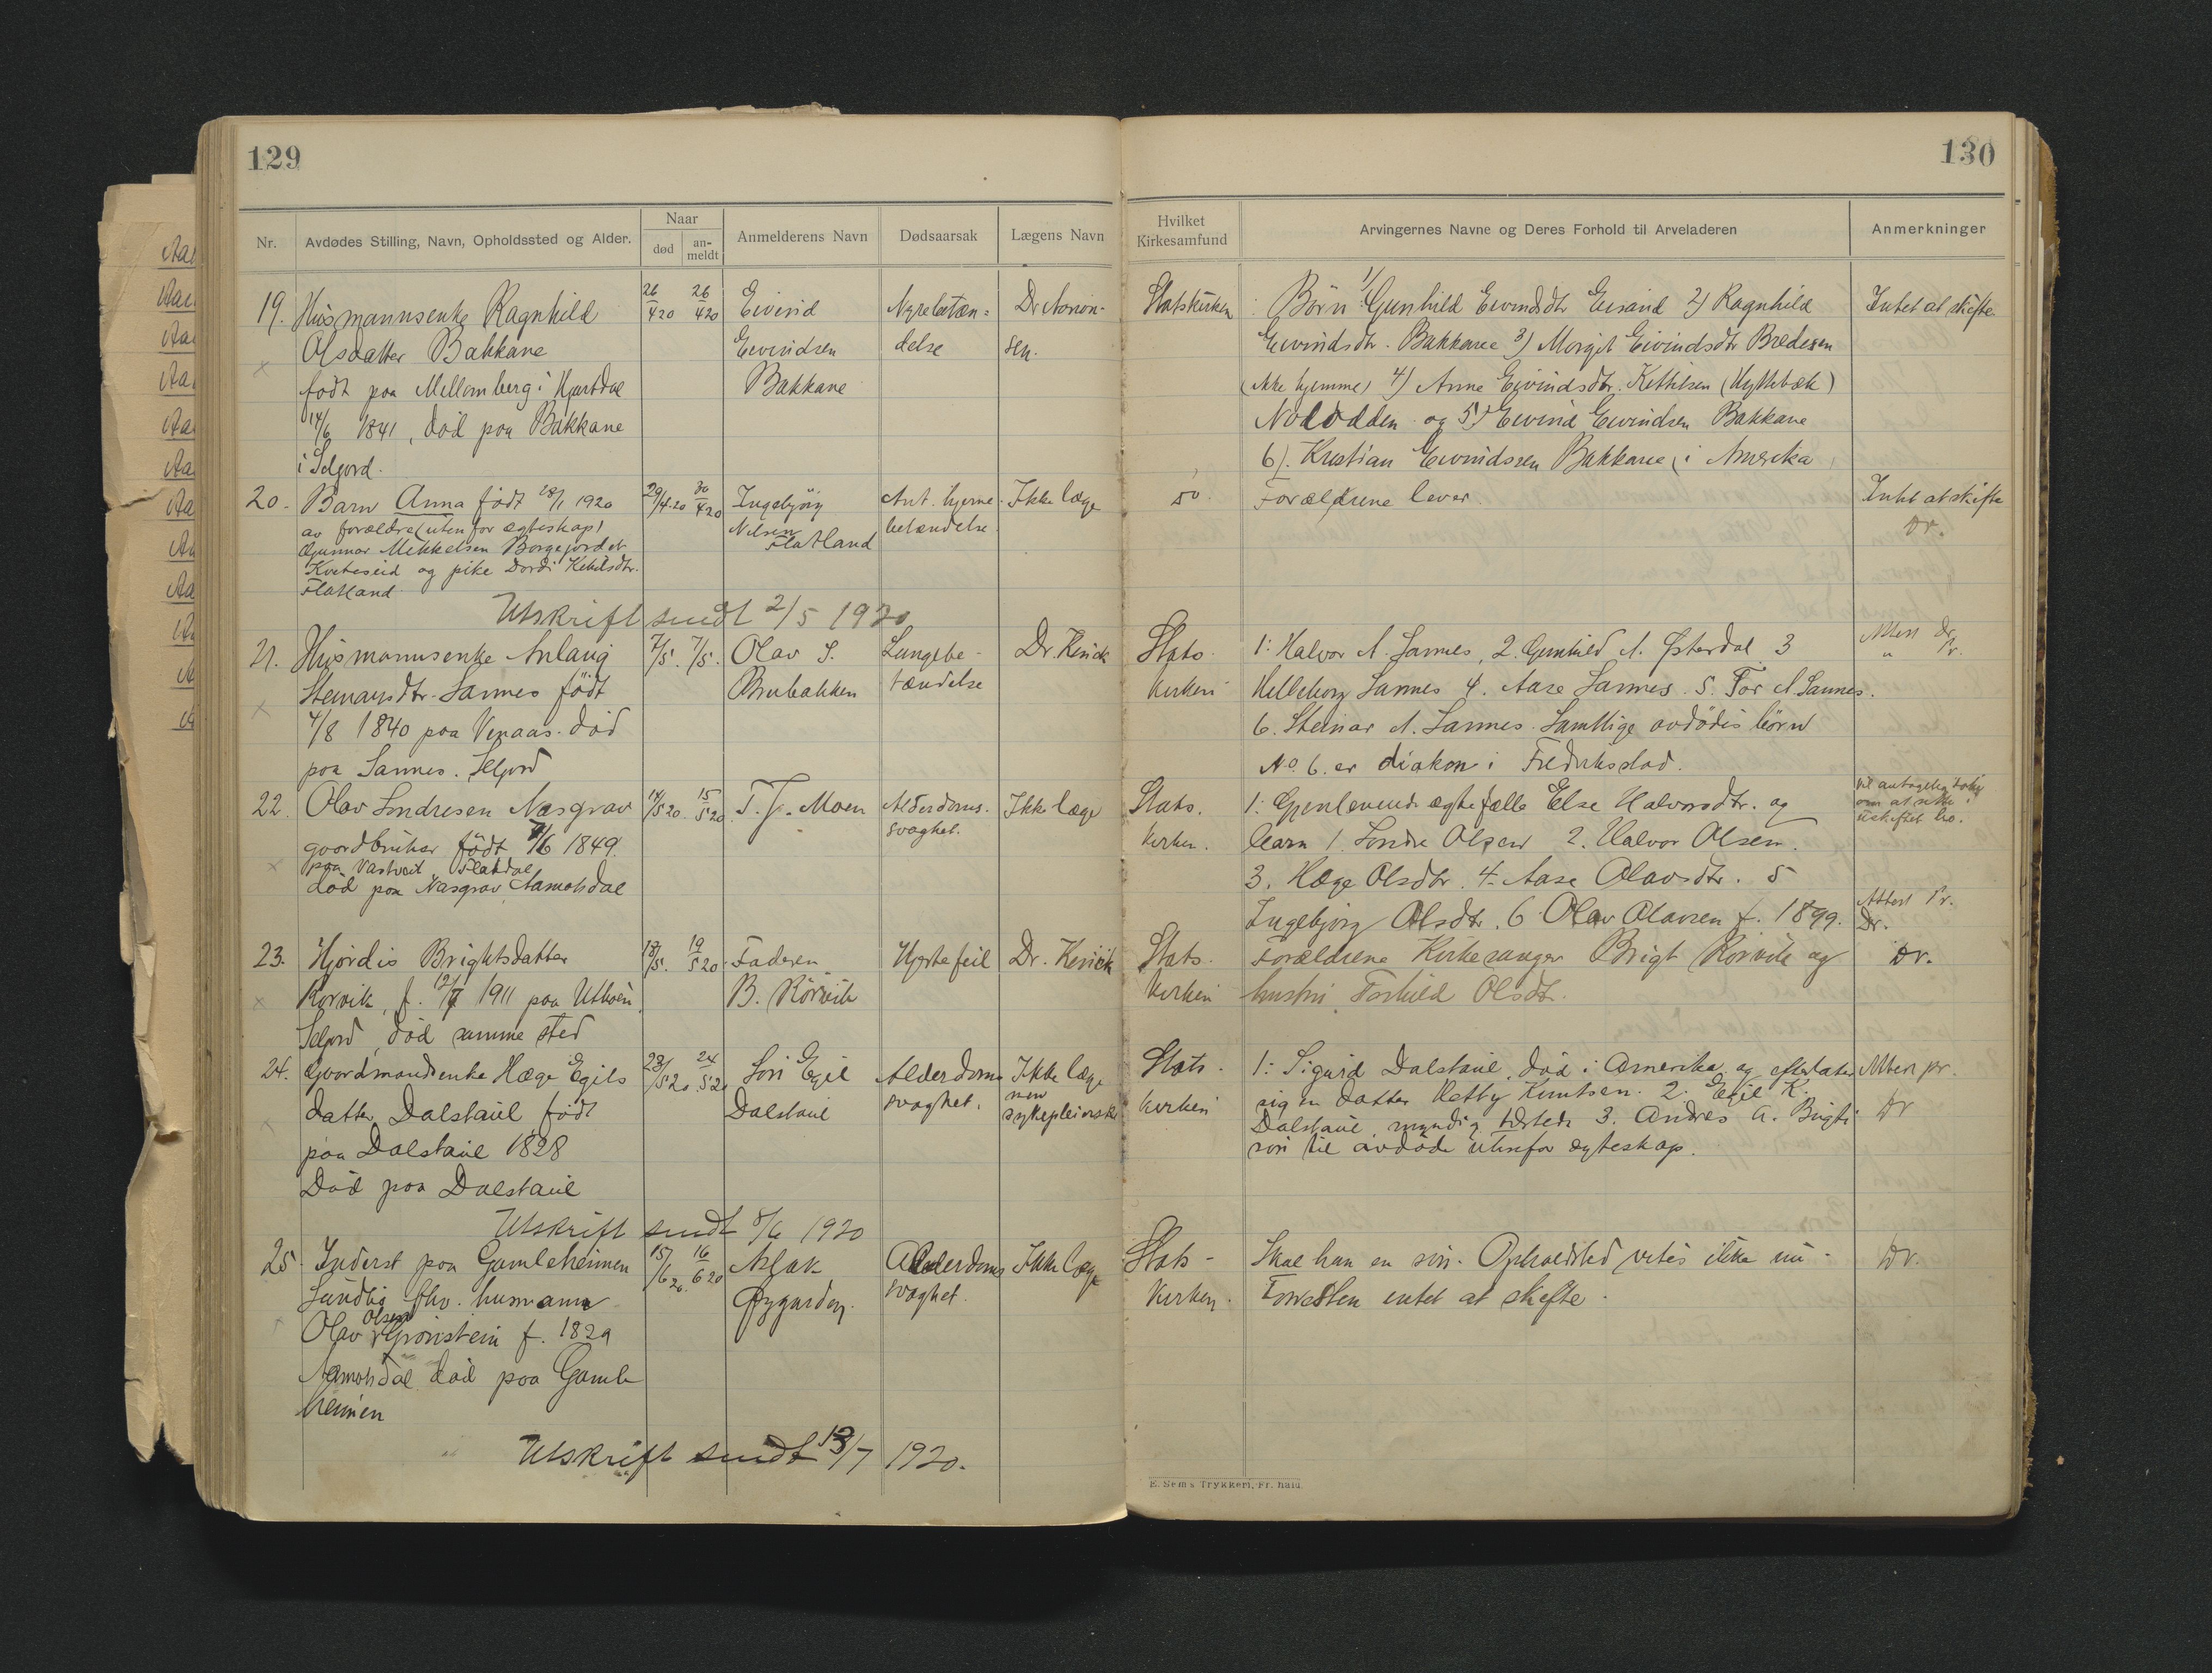 129
Nr.
Avdødes Stilling, Navn, Opholdssted og Alder.
Naar
død
an-
meldt
Anmelderens Navn
Dødsaarsak
Lægens Navn
19.
Husmannsenke Ragnhild
Olsdatter Bakkane
født paa Mellemberg i Hjartdal
14/6 1841, død paa Bakkane
i Seljord.
26/4 20
26/4 20
Eivind
Eivindsen
Bakkane
Nyrebetæn=
delse
Dr Aanon-
sen.
20.
Barn Anna født 28/1 1920
av forældre (utenfor ægteskap)
Gunnar Mikkelsen Borgejordet
Kviteseid og pike Dordi Ketilsdtr.
Flatland
29/4 20
30/4 20
Ingebjörg
Nilsen
Flatland
Ant. hjerne-
betændelse.
Ikke læge
Utskrift sendt 2/5 1920
21.
Husmannsenke Anlaug
Steinarsdtr. Sannes født
4/8 1840 paa Venaas. død
paa Sannes. Seljord
7/5.
7/5.
Olav S.
Brubakken
Lungebe-
tændelse
Dr. Kinck
22.
Olav Sondresen Næsgrav
gaardbruker født /6 1849.
paa Vastveit Flatdal
død paa Næsgrav Aamotsdal
14/5 20.
15/5 20
T. J. Moen
Alderdoms-
svaghet.
Ikke læge
23.
Hjördis Brightsdatter
Rorvik, f. 1911 paa Utboen
Seljord, død samme sted
18/5.
19/5 20
Faderen
B. Rörvik
Hjertefeil
Dr. Kinck
24.
Gaardmandsenke Hæge Egils
datter Dalstaul født
paa Dalstaul 1828
Død paa Dalstaul
23/5 20
24/5 20
Søn Egil
Dalstaul
Alderdoms
svaghet.
Ikke læge
men
sykepleierske
Utskrift sendt 8/6 1920
25.
Inderst paa Gamleheimen
Sundbø fhv. husmann
Olsen
Olav Grönstein f. 1829
Aamotsdal død paa Gamle
heimen
15/6 20.
16/6 20
Aslak
Øygarden.
Alderdoms
svaghet.
Ikke læge
Utskrift sendt 13/7 1920.
130
Hvilket
Kirkesamfund
Arvingernes Navne og Deres Forhold til Arveladeren
Anmerkninger
Statskirken
Börn: 1/ Gunhild Eivindsdtr Eisand 2) Ragnhild
Eivindsdtr. Bakkane 3) Morgit Eivindsdtr Bredesen
(ikke hjemme) 4) Anne Eivindsdtr. Kettilsen (Hyttebæk)
Notodden og 5) Eivind Eivindsen Bakkane
6). Kristian Eivindssen Bakkane, i Amerika
Intet at skifte
Do.
Forældrene lever
Intet at skifte
Dr.
Stats-
kirken
1: Halvor A. Sannes, 2. Gunhild A. Østerdal 3
Helleborg Sannes 4. Aase Sannes. 5. Tor A. Sannes.
6. Steinar A. Sannes. Samtlige avdødes börn
No. 6. er diakon i Fredrikstad.
Attest Dr.
" Pr.
Stats.
kirken.
1: Gjenlevende ægtefælle Else Halvorsdtr. og
barn 1. Sondre Olsen 2. Halvor Olsen.
3. Hæge Olsdtr. 4. Aase Olavsdtr. 5
Ingebjörg Olsdtr. 6 Olav Olavsen f. 1899.
Vil antagelig
om at sitte i
uskiftet bo.
Attest Pr.
Dr.
Stats.
kirken
Forældrene Kirkesanger Brigt Rörvik og
hustru Torhild Olsdtr.
Dr.
Stats-
kirken
1: Sigurd Dalstaul, død i Amerika og efterlater
sig en datter Hetty Knutsen. 2. Egil K.
Dalstaul, myndig tilstede 3. Andres A. Brigti
søn til avdøde utenfor ægteskap.
Attest pr.
Dr
Stats-
kirken.
Skal han en søn. Opholdsted vites ikke nu-
Forresten intet at skifte.
Dr.
E. Sem's Trykkeri, Fr. hald